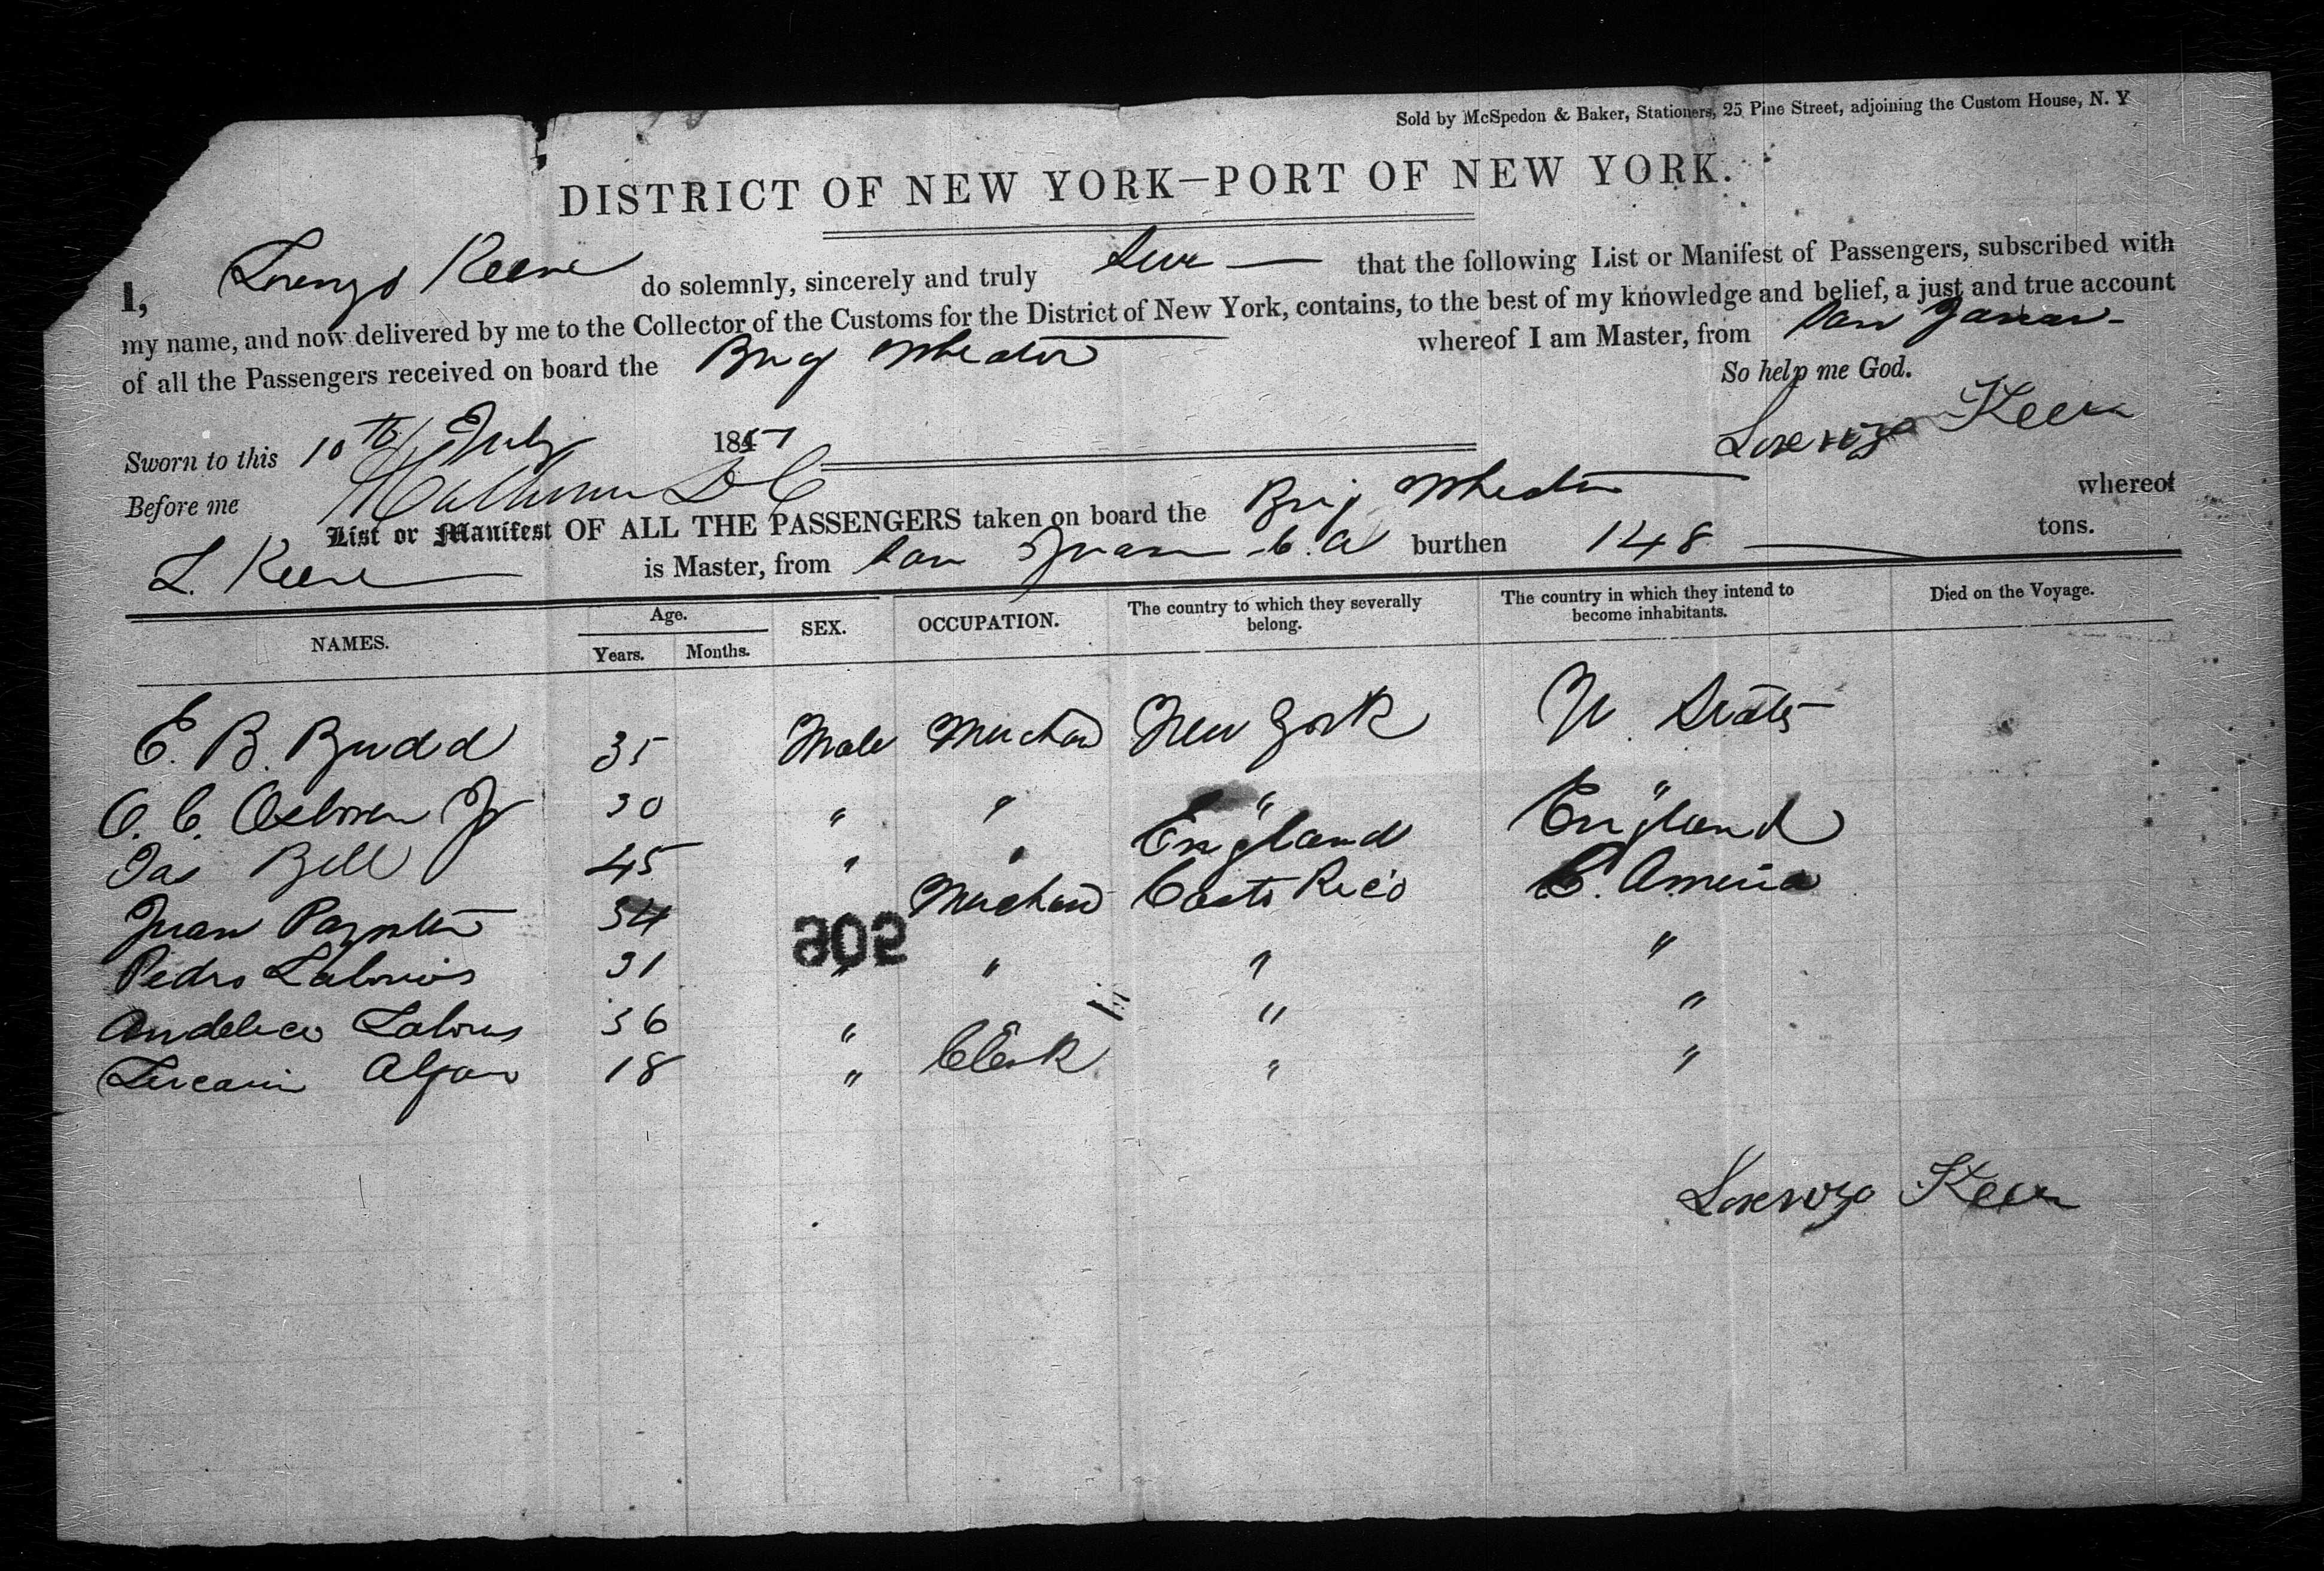 Sold by McSpedon & Baker, Stationers, 25 Pine Street, adjoining the Custom House, N. Y
DISTRICT OF NEW YORK—PORT OF NEW YORK.
I, Lorenzo Keene do solemnly, sincerely and truly that the following List or Manifest of Passengers, subscribed with
my name, and now delivered by me to the Collector of the Customs for the District of New York, contains, to the best of my knowledge and belief, a just and true account
of all the Passengers received on board the Brig Wheaton whereof I am Master, from San
So help me God.
Sworn to this 10th July 18 Lorenzo Keen
Before me
List or Manifest OF ALL THE PASSENGERS taken on board the Brig Wheaton whereof
L. Keene is Master, from San Juan C. A burthen 148 tons.
NAMES. Age. SEX. OCCUPATION. The country to which they severally belong. The country in which they intend to become inhabitants. Died on the Voyage.
Years. Months.
E. B. Budd 35 Male Merchan New York U. States
O. C. Osborn Jr 30 " " " "
Jas Bell 45 " " England England
Juan Paynter 34 Merchan Costo Rico C. America
Pedro 31 " " " "
905
36 " " "
18 " Clerk " "
Lorenzo Keen